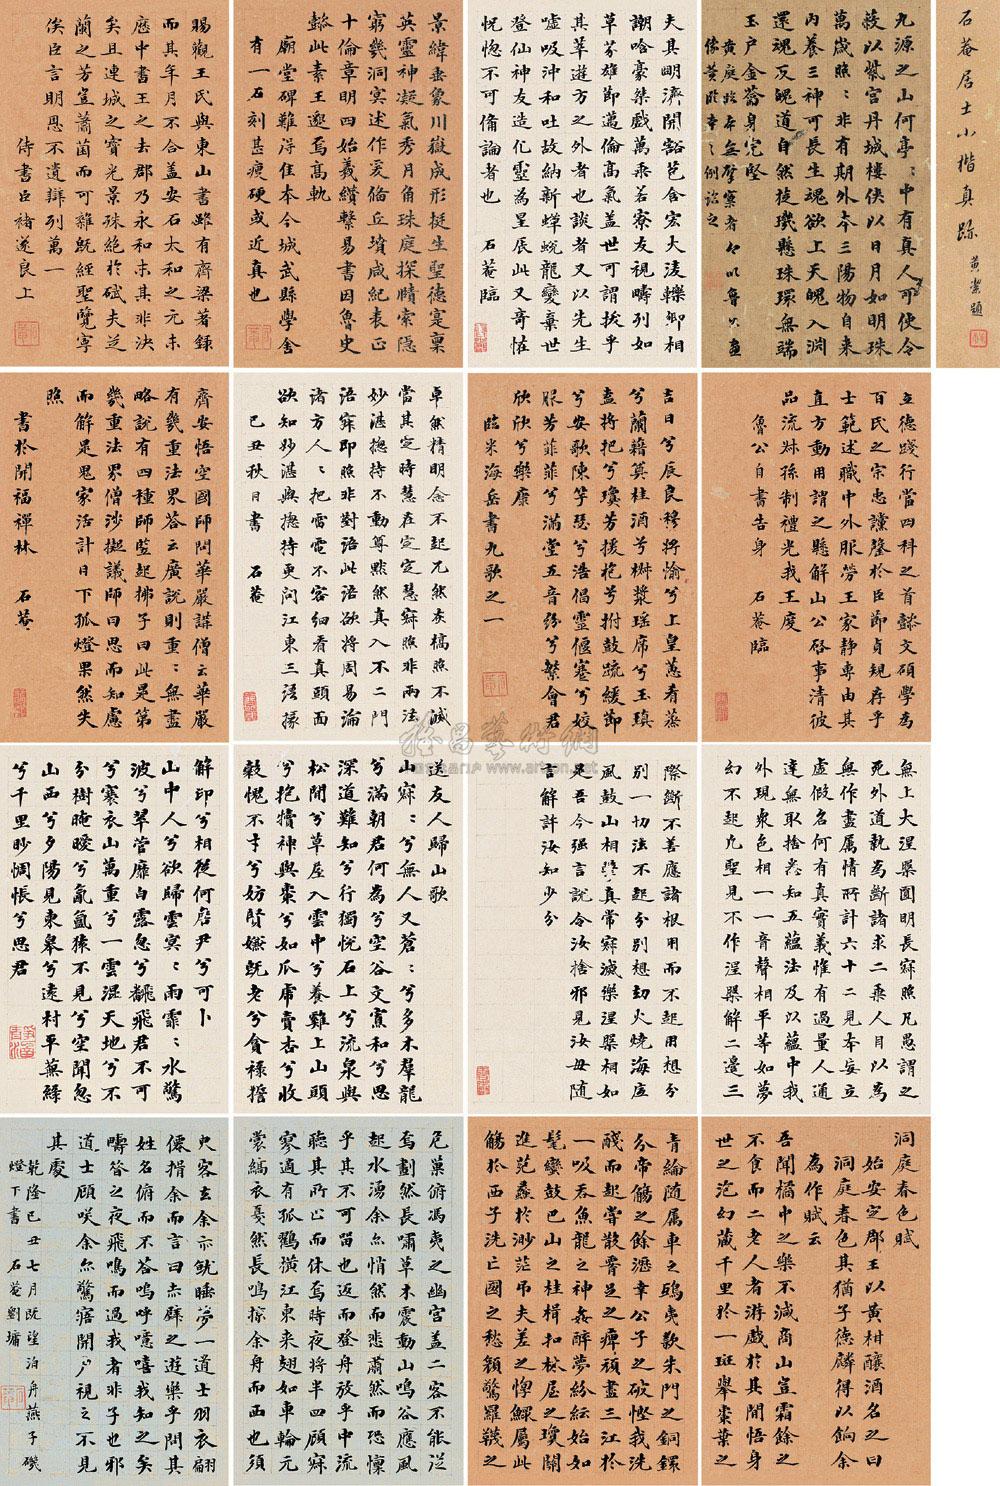 石菴居士小楷真跡
九源之山何亭亭中有真人可使令
蔽以紫宮丹城樓俠以日月如明珠
萬歲照〻非有期外本三陽物自来
内養三神可長生魂欲上天魄入淵
還魂反魄道自然旋璣懸珠環無端
玉戶金籥身完堅
夫其明濟開豁苞含宏大淩轢卿相
嘲哈豪桀戲萬乘若寮友視疇列如
草芥雄節邁倫高氣蓋世可謂拔乎
其萃遊方之外者也談者又以先生
噓吸沖和吐故納新蟬蛻龍變棄世
登仙神友造化靈為星辰此又奇怪
怳惚不可備論者也 石菴臨
景緯垂象川嶽成形挺生聖德寔稟
英靈神凝氣秀月角珠庭探賾索隱
窮幾洞冥述作爰備丘墳咸紀表正
十倫章明四始義纘繫易書因魯史
懿此素王邈焉高軌
廟堂碑難得佳本今城武縣學舍
有一石刻甚瘦硬或近真也
賜觀王氏與東山書雖有齊梁著錄
而其年月不合蓋安石太和之元未
應中書王之去郡乃永和末其非決
矣且連城之寶光景殊絕於碔夫芝
蘭之芳豈蕭茵而可雜既經聖覽寧
俟臣言明恩不遺辯列萬一
侍書臣褚遂良上
立德踐行當四科之首懿文碩學為
百氏之宗忠讜罄於臣節貞規存乎
士範述職中外服勞王家静專由其
直方動用謂之懸解山公啓事清彼
品流叔孫制禮光我王度
魯公自書告身 石菴臨
吉日兮辰良穆將愉兮上皇蕙肴蒸
兮蘭藉奠桂酒兮椒漿瑤席兮玉瑱
盍將把兮瓊芳援枹兮拊鼓疏緩節
兮安歌陳竽瑟兮浩倡靈偃蹇兮姣
服芳菲菲兮滿堂五音紛兮繁會君
欣欣兮樂康
臨米海岳書九歌之一
卓然精明念不起兀然灰槁照不滅
當其定時慧在定定慧寂照非兩法
妙湛摠持不動尊默然真入不二門
語寂即照非對語此語欲將周易論
諸方人〻把雷電不容細看真頭面
欲知妙湛與摠持更问江東三語掾
己丑秋日書 石菴
齊安悟空國師問華嚴講僧云華嚴
有幾重法界答云廣說則重〻無盡
略說有四種師豎起拂子曰此是第
幾重法界僧沙擬議師曰思而知慮
而解是鬼家活計日下孤燈果然失
照
書於開福禪林 石菴
無上大涅槃圓明長寂照凡愚謂之
死外道執為斷諸求二乘人目以為
無作盡属情所計六十二見本妄立
虛假名何有真實義惟有過量人通
達無取捨以知五蘊法及以蘊中我
外現衆色相一一音聲相平等如夢
幻不起凡聖見不作涅槃解二邊三
際斷不善應諸根用而不起用想分
別一切法不起分別想劫火燒海底
風鼓山相擊真常寂滅樂涅槃相如
是吾今强言說令汝捨邪見汝毋隨
言解許汝知少分
送友人歸山歌
山寂〻兮無人又蒼〻兮多木羣龍
兮滿朝君何為兮空谷文寡和兮思
深道難知兮行獨悅石上兮流泉與
松間兮草屋入雲中兮養雞上山頭
兮抱犢神與棗兮如瓜虎賣杏兮收
穀愧不才兮妨賢嫌既老兮貪祿誓
解印兮相從何詹尹兮可卜
山中人兮欲歸雲冥〻雨霏〻水驚
波兮翠菅靡白露忽兮翻飛君不可
兮褰衣山萬重兮一雲混天地兮不
分樹晻曖兮氤氲猿不見兮空聞忽
山西兮夕陽見東臯兮遠村平蕪綠
兮千里眇惆悵兮思君
洞庭春色賦
始安定郡王以黄柑釀酒名之曰
洞庭春色其猶子德麟得以餉余
為作賦云
吾聞橘中之樂不減商山豈霜餘之
不食而二老人者游戲於其間悟身
世之泡幻藏千里於一斑舉棗葉之
青綸随属車之鴟夷歎朱門之銅鐶
分帝觴之餘瀝幸公子之破慳我洗
盞而起嘗散腰足之痺頑盡三江於
一吸吞魚龍之神姦醉夢紛紜始如
髦蠻鼓巴山之桂楫扣林屋之瓊關
進范蠡於渺茫吊夫差之惸鰥屬此
觴於西子洗亡國之愁顏驚羅韤之
危巢俯馮夷之幽宮蓋二客不能從
焉劃然長嘯草木震動山鳴谷應風
起水湧余亦悄然而悲蕭然而恐懔
乎其不可留也返而登舟放乎中流
聽其所止而休焉時夜將半四顧寂
寥適有孤鶴橫江東来翅如車輪元
裳縞衣戛然長鳴掠余舟而西也須
臾客去余亦就睡夢一道士羽衣翩
僊揖余而言曰赤壁之遊樂乎問其
姓名俯而不答嗚呼噫嘻我知之矣
疇昔之夜飛鳴而過我者非子也邪
道士顧咲余亦驚寤開户視之不見
其處
乾隆己丑七月既望泊舟燕子磯
燈下書 石菴劉墉